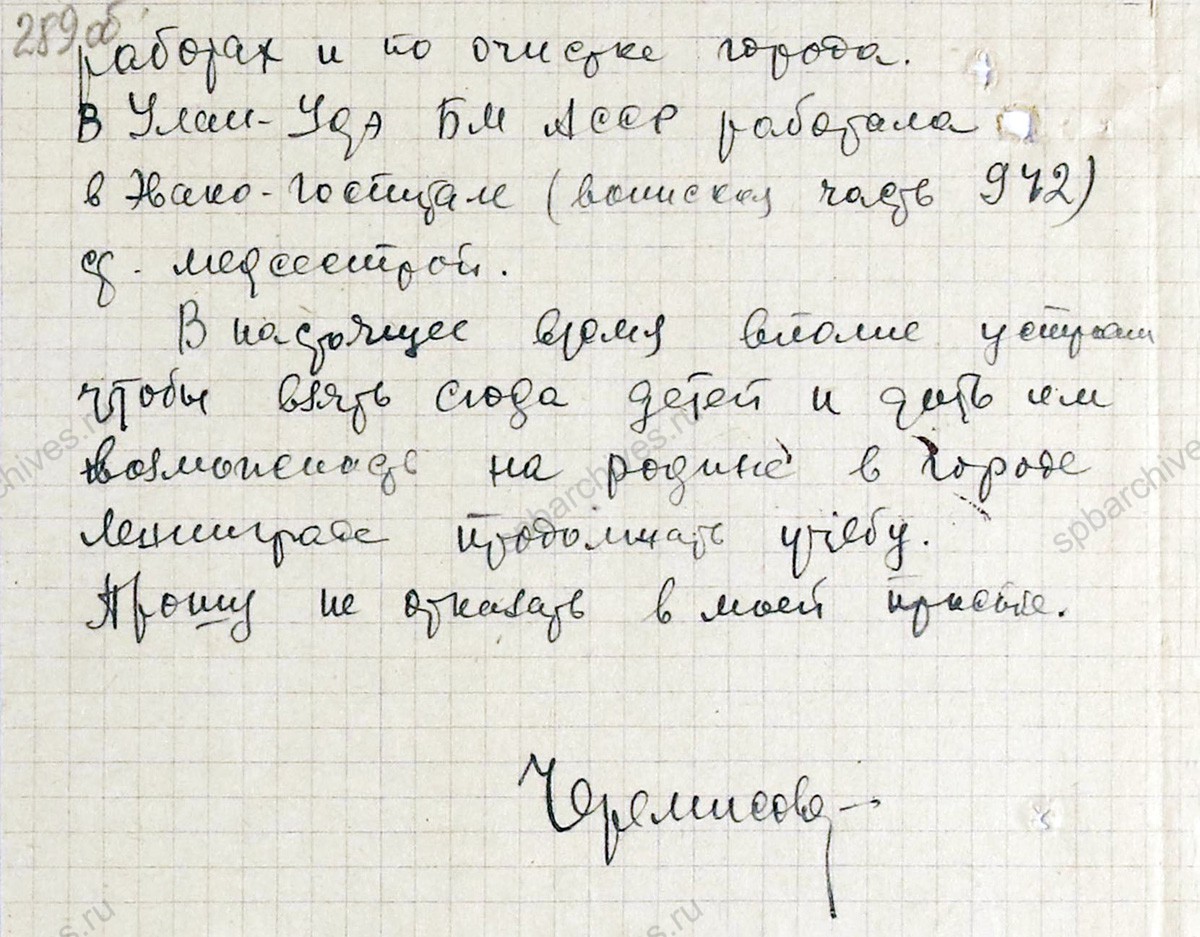 289 об
работах и по очистке города.
В Улан-Удэ БМ АССР работала
в Эвако-Госпитале (воинская часть 942)
ст. медсестрой.
В настоящее время вполне устроена
чтобы взять сюда детей и дать им
возможность на родине в городе
Ленинграде продолжать учебу.
Прошу не отказать в моей просьбе.
Черемисова
spbarchives.ru
spbarchives.ru
spbarchives.ru